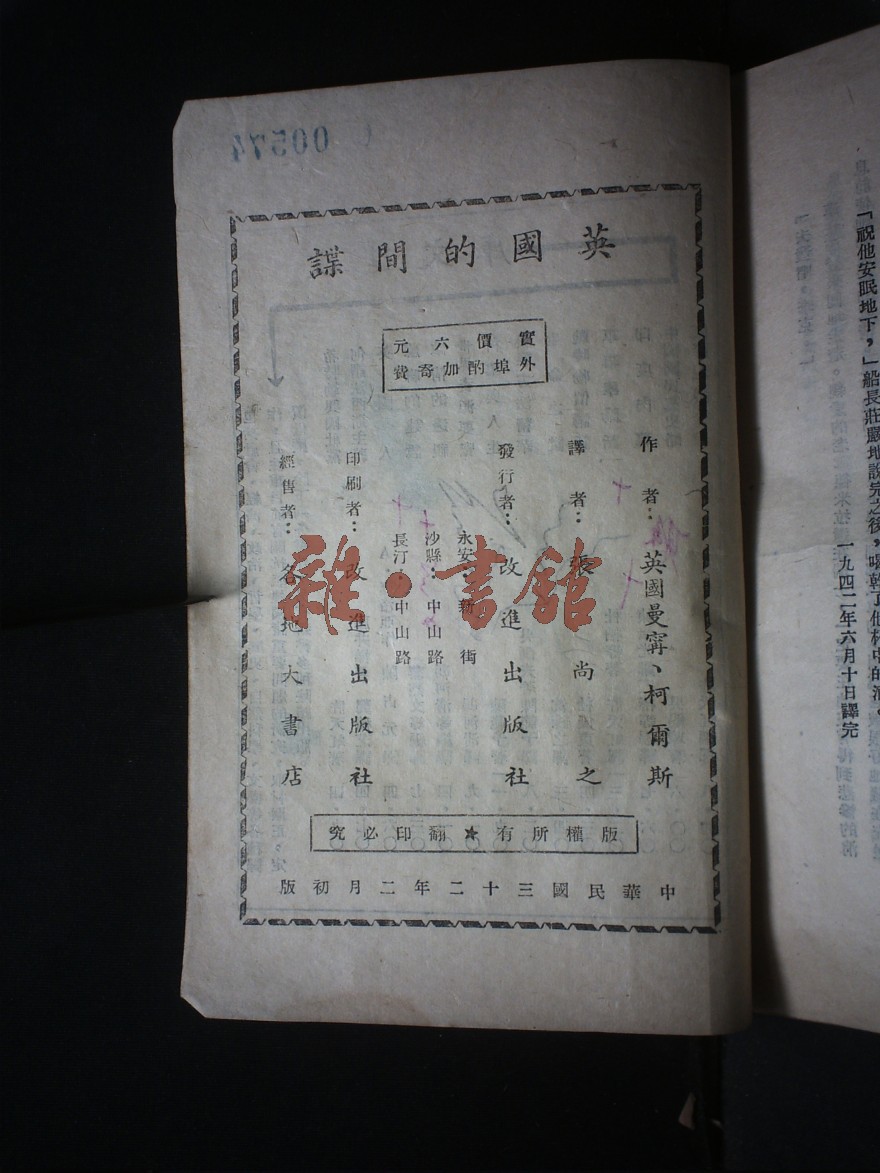 「祝他安眠地下，」船長莊嚴地說完之後，喝乾了他杯中的酒。
一九四二年六月十日譯完
英國的間諜
實價六元
外埠酌加寄費
作者：英國曼寧、柯爾斯
譯者：張尚之
發行者：改進出版社
永安：新街
沙縣：中山路
長汀：中山路
印刷者：改進出版社
經售者：各地大書店
版權所有★翻印必究
中華民國三十二年二月初版
00574
雜·書館